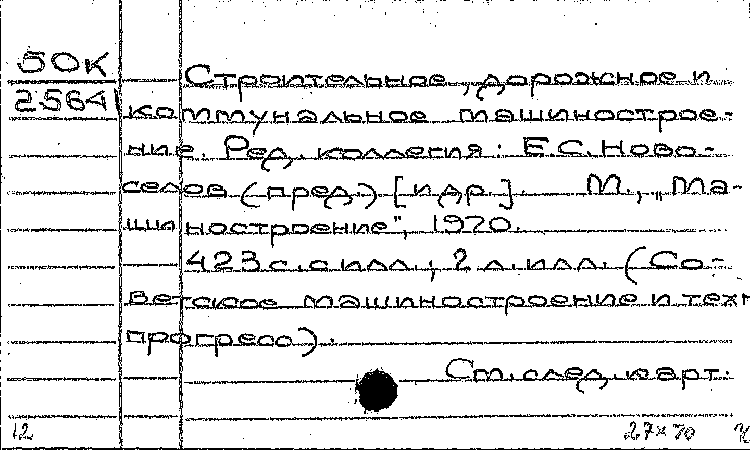 50К
25641
Строительное, дорожное и
коммунальное машинострое-
ние. Ред. коллегия: Е.С. Ново-
селов (пред.) [и др.]. М., „Ма-
шиностроение", 1970.
423 с. с илл.; 2 л. илл. (Со-
ветское машиностроение и техн
прогресс).
См. след. карт.
12 27х70